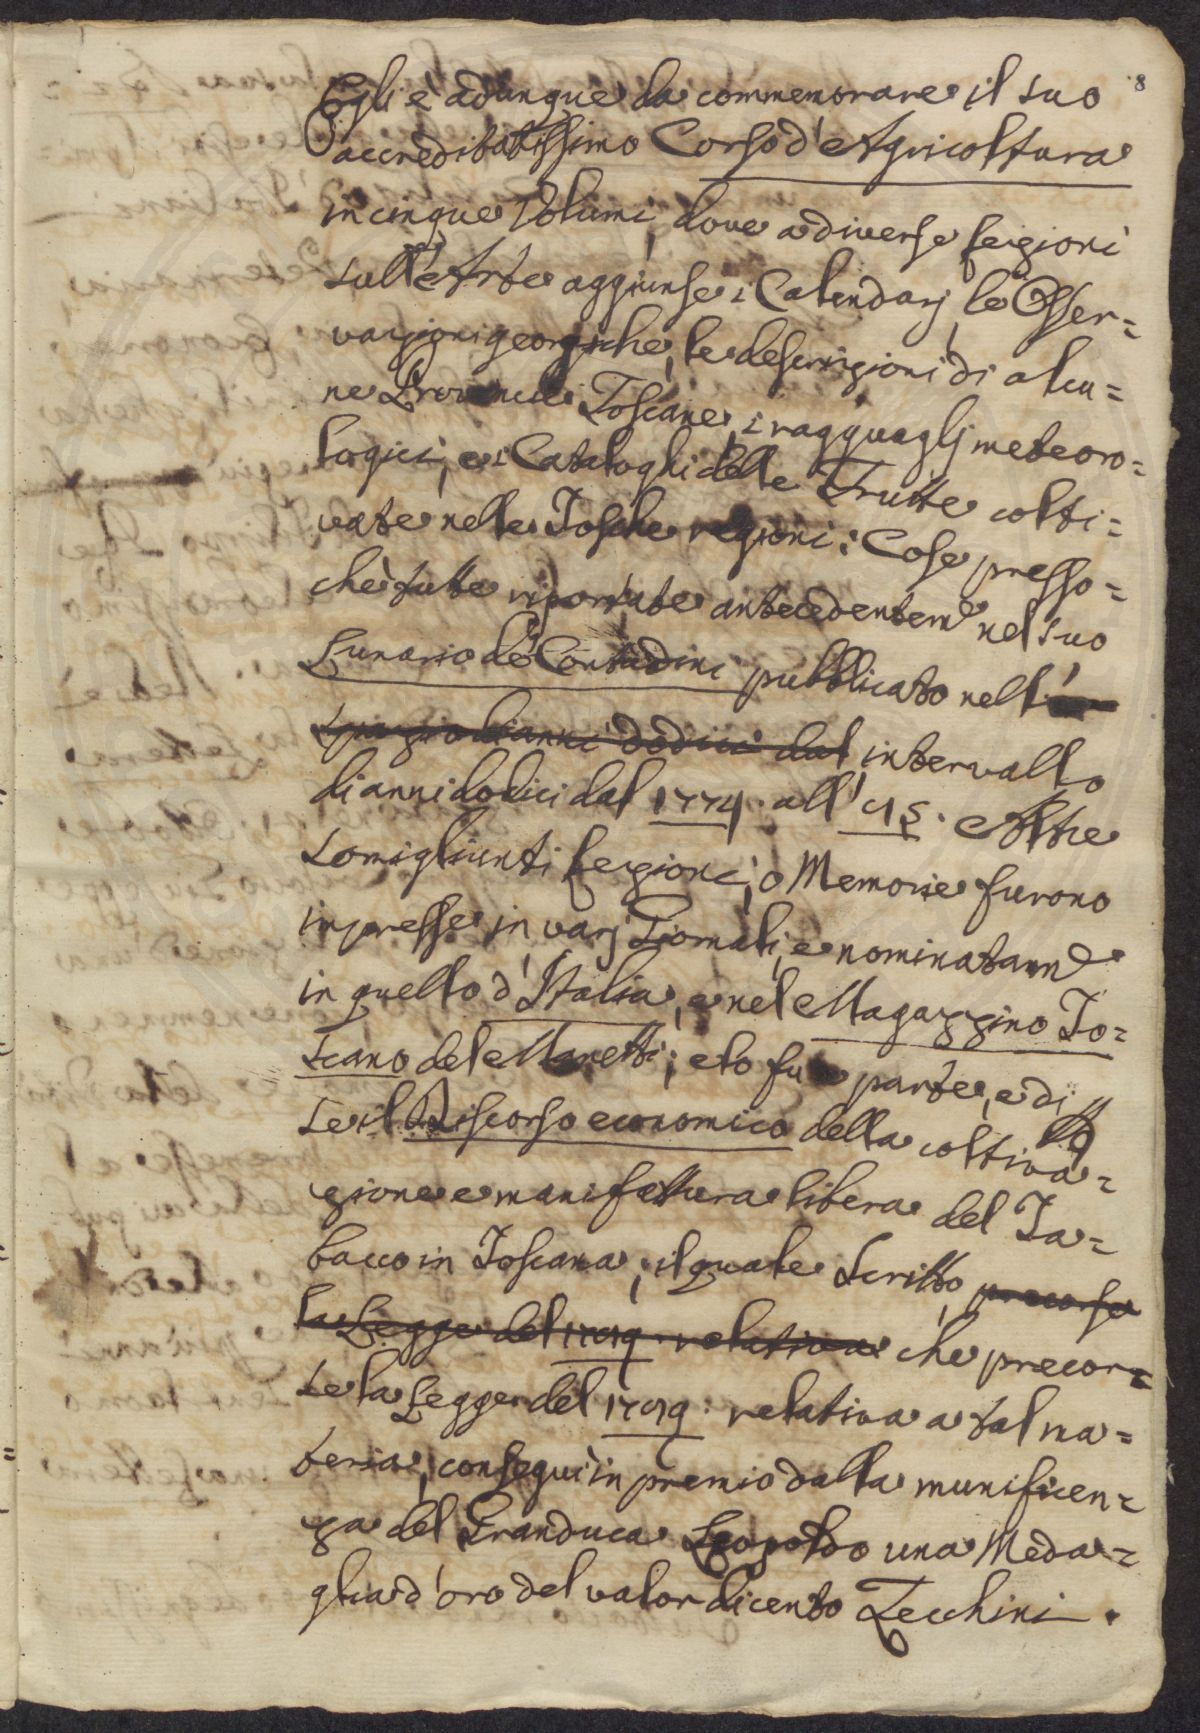 8
Egli è adunque da commemorare il suo
accreditatissimo Corso d'Agricoltura
in cinque Volumi, dove a diverse lezioni
sull'Arte aggiunse i Calendarj, le Osser=
vazioni georgiche, le descrizioni di alcu=
ne Provincie Toscane, i ragguaglj meteoro=
logici, e i Cataloghi delle Frutte colti=
vate nelle Tosche regioni: Cose presso=
chè tutte riportate antecedentem.e nel suo
Lunario de' Contadini pubblicato nell'
spazio di anni dodici dal intervallo
di anni dodici dal 1774. all' 85. Altre
somiglianti lezioni, o Memorie furono
impresse in varj Giornali, e nominatam.e
in quello d'Italia, e nel Magazzino To=
scano del Manetti; e lo fu a parte, e di
se il Discorso economico della coltiva=
zione e manifattura libera del Ta=
bacco in Toscana; il quale Scritto precorse
la Legge del 1789. relativa che precor=
se la Legge del 1789. relativa a tal ma=
teria, conseguì in premio dalla munificen=
za del Granduca Leopoldo una Meda=
glia d'oro del valor di cento Zecchini.